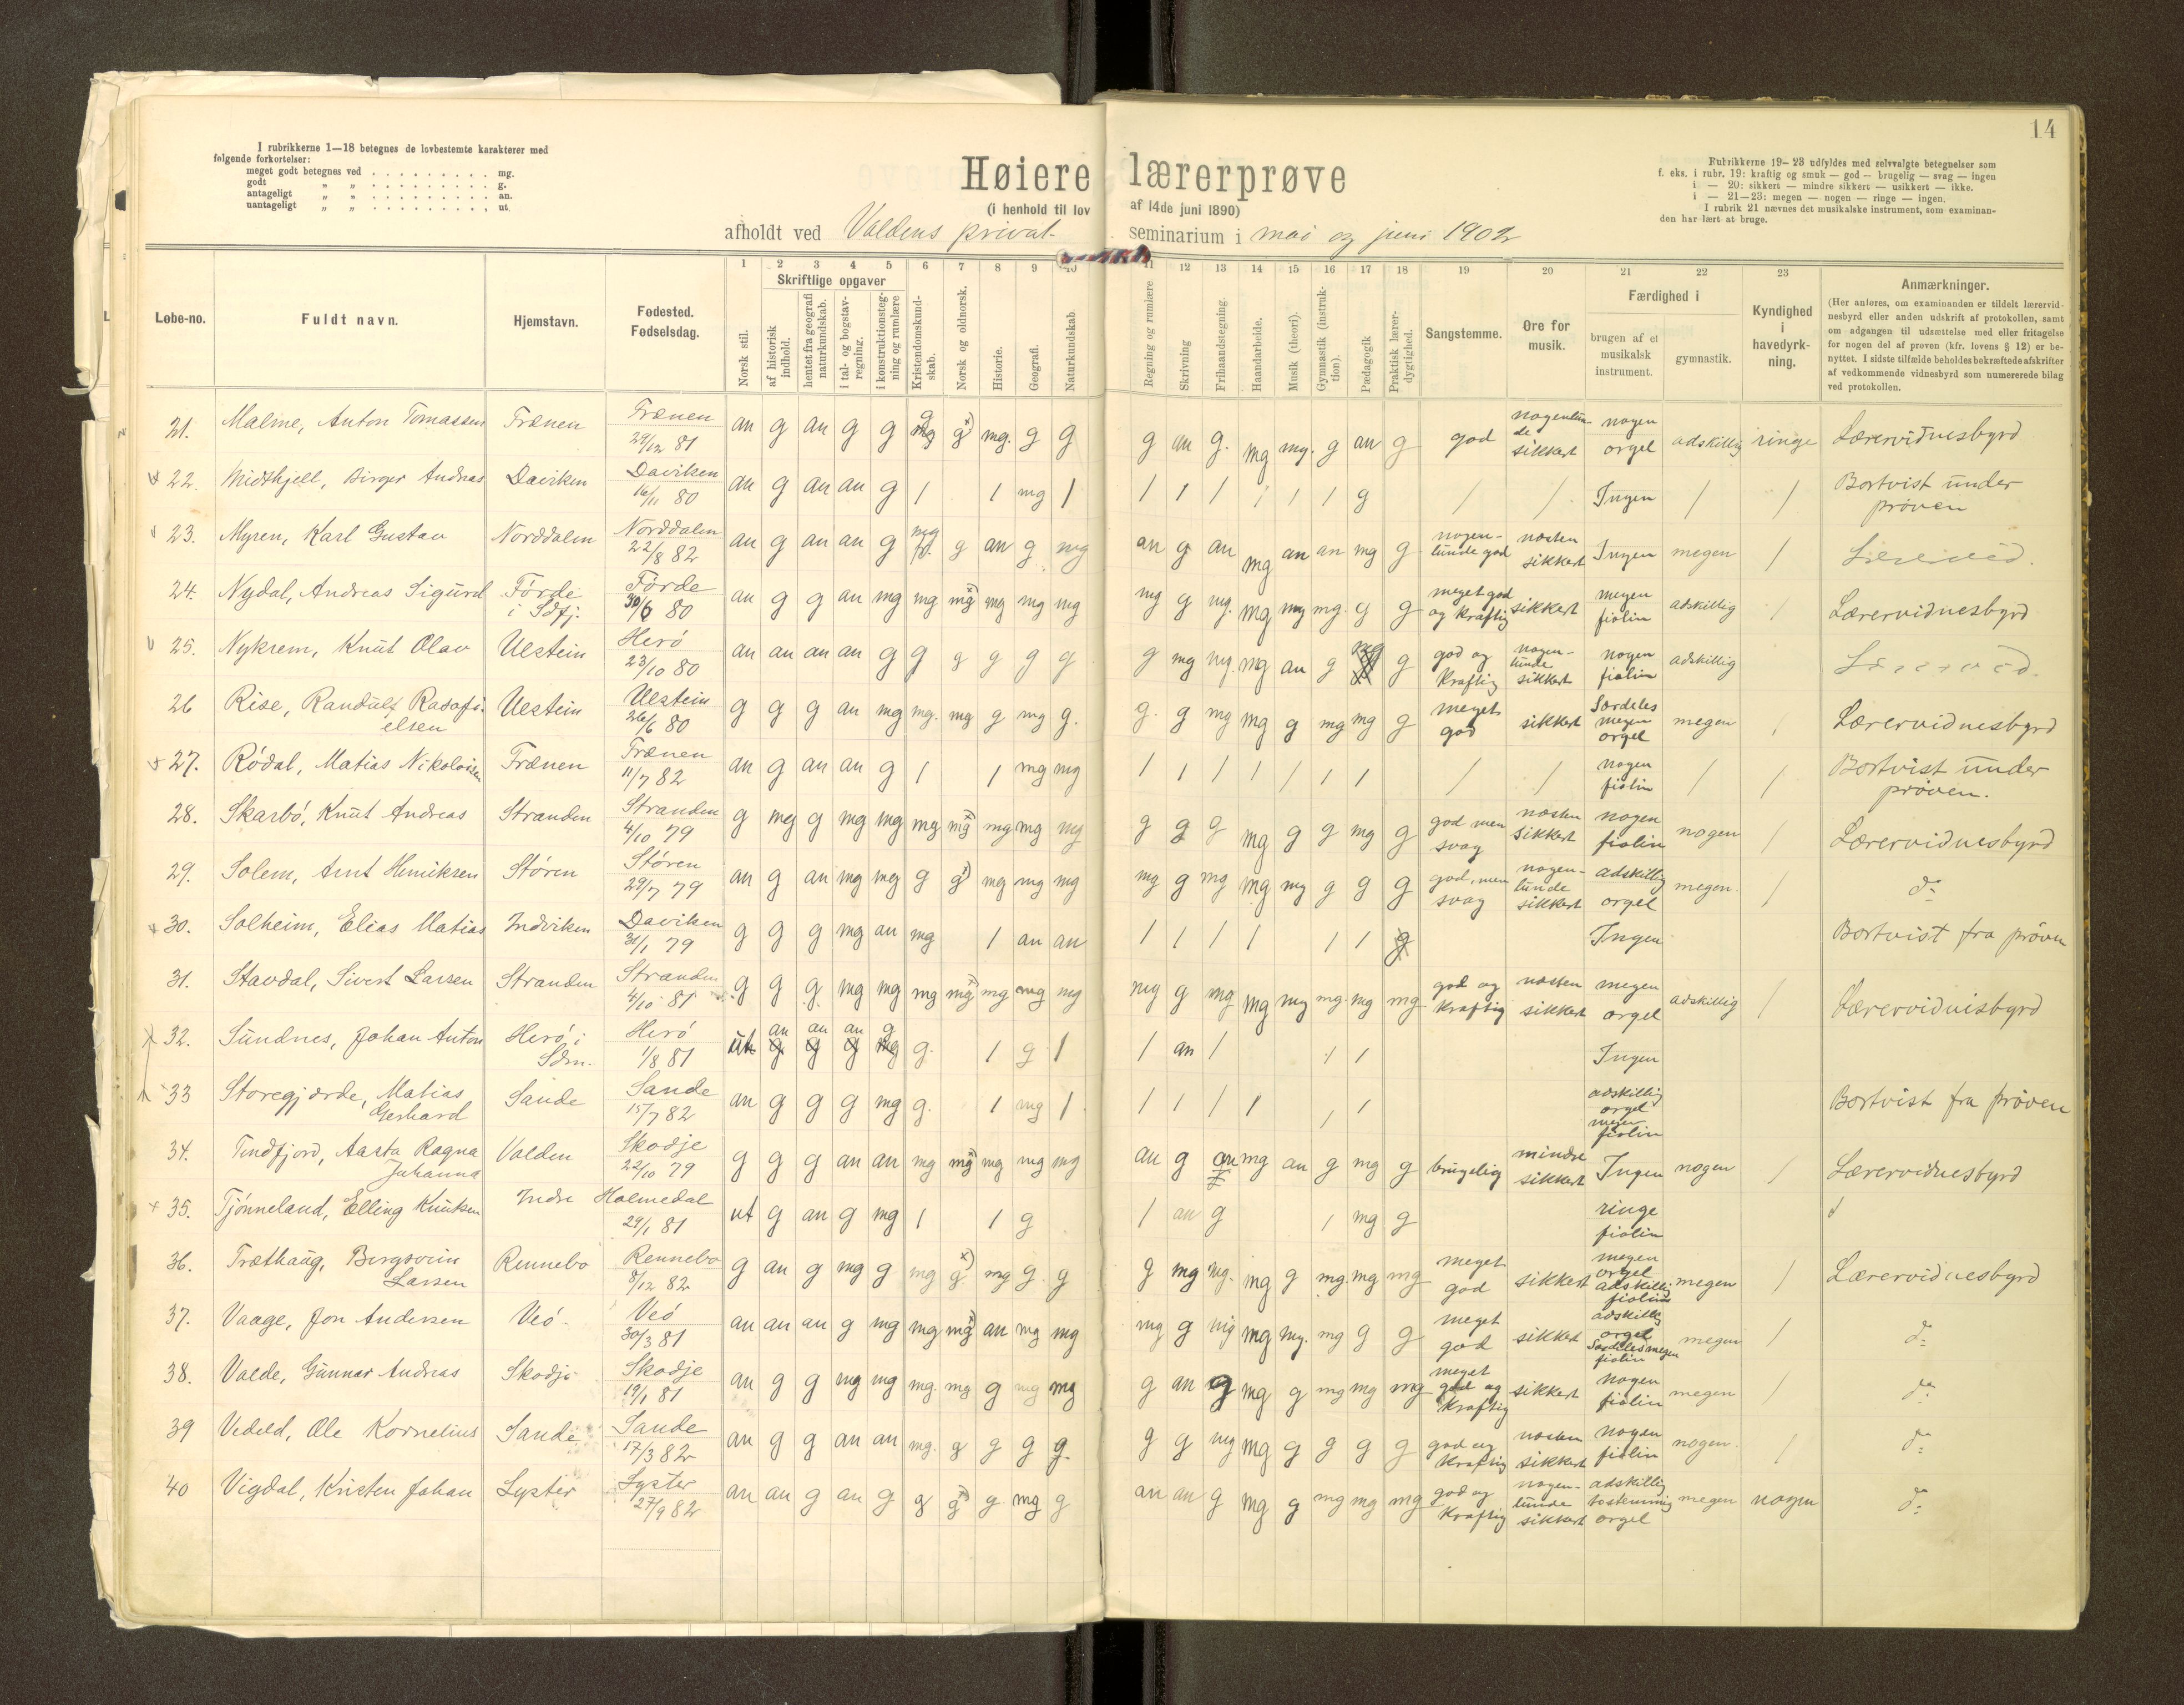 14
I rubrikkerne 1—18 betegnes de lovbestemte karakterer med
følgende forkortelser:
meget godt betegnes ved . . . . . . . . . . mg.
godt „ „ . . . . . . . . . . g.
antageligt „ „ . . . . . . . . . . an.
uantageligt „ „ . . . . . . . . . . ut.
Høiere lærerprøve
(i henhold til lov af 14de juni 1890)
afholdt ved Voldens privat- seminarium i mai og juni 1902
Rubrikkerne 19—23 udfyldes med selvvalgte betegnelser som
f. eks. i rubr. 19: kraftig og smuk — god — brugelig — svag — ingen
i — 20: sikkert — mindre sikkert — usikkert — ikke.
i — 21—23: megen — nogen — ringe — ingen.
I rubrik 21 nævnes det musikalske instrument, som examinan-
den har lært at bruge.
Løbe-no.
Fuldt navn.
Hjemstavn.
Fødested.
Fødselsdag.
1 Norsk stil.
Skriftlige opgaver
2 af historisk indhold.
3 hentet fra geografi naturkundskab.
4 i tal- og bogstav-regning.
5 i konstruktionstegning og rumlære
6 Kristendomskundskab.
7 Norsk og oldnorsk.
8 Historie.
9 Geografi.
10 Naturkundskab.
11 Regning og rumlære
12 Skrivning
13 Frihaandstegning.
14 Haandarbeide.
15 Musik (theori).
16 Gymnastik (instruktion).
17 Pædagogik
18 Praktisk lærerdygtighed.
19 Sangstemme.
20 Øre for musik.
Færdighed i
21 brugen af et musikalsk instrument.
22 gymnastik.
23 Kyndighed i havedyrkning.
Anmærkninger.
(Her anføres, om examinanden er tildelt lærervid-
nesbyrd eller anden udskrift af protokollen, samt
om adgangen til udsættelse med eller fritagelse
for nogen del af prøven (kfr. lovens § 12) er be-
nyttet. I sidste tilfælde beholdes bekræftede afskrifter
af vedkommende vidnesbyrd som numererede bilag
ved protokollen.
21. Malme, Anton Tomassen Frænen Frænen 29/12 81 an g an g g g mg g x) mg. g g g an g. mg mg. g an g god nogenlunde sikkert nogen orgel adskillig ringe Lærervidnesbyrd
22. Midthjell, Birger Andreas Daviken Daviken 16/11 80 an g an an g / / mg / / / / / / / g / / Ingen / / Bortvist under prøven
23. Myren, Karl Gustav Norddalen Norddalen 22/8 82 an g an an g mg g an g mg an g an mg an an mg g nogen-lunde god næsten sikkert Ingen megen /
24. Nydal, Andreas Sigurd Førde i Sdfj. Førde 30/6 80 an g g an mg mg mg x) mg mg mg mg g mg. mg mg mg. g g meget god og kraftig sikkert megen fiolin adskillig / Lærervidnesbyrd
25. Nykrem, Knut Olav Ulstein Herø 23/10 80 an an an an g g g g g g g mg mg. mg an g mg g god og kraftig nogen-lunde sikkert nogen fiolin adskillig
26 Rise, Randulf Ulstein Ulstein 26/6 80 g g g an mg mg. mg g mg g. g. g mg mg g mg mg g meget god sikkert Særdeles megen orgel megen / Lærervidnesbyrd
27. Rødal, Matias Nikolaisen Frænen Frænen 11/7 82 an g an an g / / mg mg / / / / / / / / / nogen fiolin / / Bortvist under prøven.
28. Skarbø, Knut Andreas Stranden Stranden 4/10 79 g mg g mg mg mg mg x) mg mg mg g g g mg g g mg g god men svag næsten sikkert nogen fiolin nogen / Lærervidnesbyrd
29. Solem, Arnt Henriksen Støren Støren 29/7 79 an g an mg mg g g x) mg mg mg mg g mg mg mg g g g god, men svag nogen-lunde sikkert adskillig orgel megen. / do
30. Solheim, Elias Matias Indviken Daviken 31/1 79 g g g mg an mg / an an / / / / / / g Ingen Bortvist fra prøven
31. Stavdal, Sivert Larsen Stranden Stranden 4/10 81 g g g mg mg mg mg x) mg mg mg mg g mg mg mg mg mg mg god og kraftig næsten sikkert megen orgel adskillig / Lærervidnesbyrd
32. Sundnes, Johan Anton Herø i Sdm. Herø 1/8 81 ut an g an g an g g mg g. / g / / an / / / Ingen
33 Storegjærde, Matias Gerhard Sande Sande 15/7 82 an g g g mg g. / mg / / / / / / / adskillig orgel megen fiolin Bortvist fra prøven
34. Tindfjord, Aasta Ragna Johanna Volden Skodje 22/10 79 g g g an an mg mg x) mg mg mg an g an mg an g mg g brugelig mindre sikkert Ingen nogen / Lærervidnesbyrd
35. Tjønneland, Elling Knutsen Indre Holmedal 29/1 81 ut g an g mg / / g / an g / mg g ringe fiolin
36. Træthaug, Bergsvein Larsen Rennebo Rennebo 8/12 82 g an g mg g mg g x) mg g. g g mg mg. mg g mg. mg mg meget god sikkert megen orgel adskillig fiolin megen / Lærervidnesbyrd
37. Vaage, Jon Andersen Veø. Veø 30/3 81 an an an g mg mg mg x) an mg mg mg g mg mg mg. mg g g meget god sikkert adskillig orgel Særdeles megen fiolin megen / do
38. Valde, Gunnar Andreas Skodje Skodje 19/1 81 an g g mg mg mg. mg g mg mg g an g mg g mg mg mg meget god og kraftig sikkert nogen fiolin megen / do
39 Vedeld, Ole Kornelius Sande Sande 17/3 82 an g g an an mg. g g g g. g g mg mg g g g g god og kraftig næsten sikkert nogen fiolin nogen. / do
40 Vigdal, Kristen Johan Lyster Lyster 27/9 82 an an g an g g g x) g mg g an an g mg g mg mg mg god og kraftig nogen-lunde sikkert adskillig tostemmig orgel megen nogen do